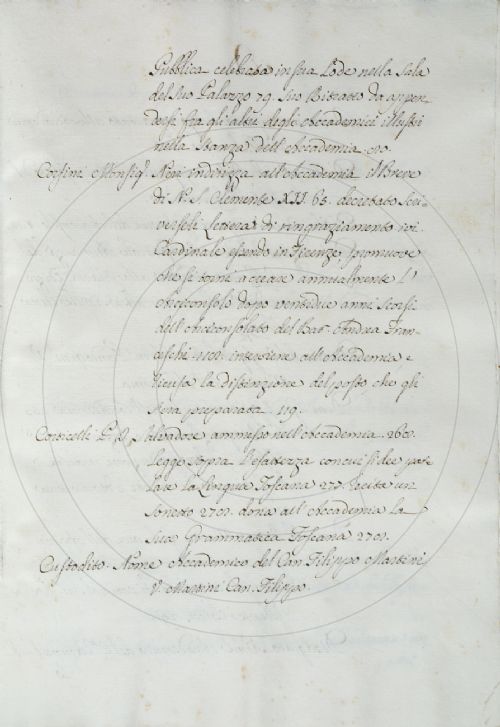 Pubblica celebrata in sua Lode nella Sala
del suo Palazzo 79. suo Ritratto da appen-
dersi fra gli altri degli Accademici illustri
nella Stanza dell'Accademia
Corsini Monsig.r Neri indirizza all'Accademia il Breve
di N. S. Clemente XII. 65. decretato scri-
verseli Lettera di ringraziamento ivi.
Cardinale essendo in Firenze promuove
che si torni a creare annualmente l'
Arciconsolo dopo ventidue anni scorsi
dell'Arciconsolato del Bar. Andrea Fran-
ceschi interviene all'Accademia e
ricusa la distinzione del posto che gli
s'era preparata 119.
Corticelli P. D. Salvadore ammesso nell'Accademia
legge sopra l'esattezza con cui si dee par-
lare la Lingua Toscana recita un
sonetto dona all'Accademia la
sua Grammatica Toscana
Custodito. Nome Accademico del Can. Filippo Martini
V. Martini Can. Filippo.